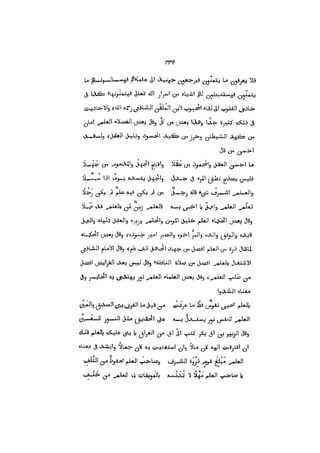 ٢٣٣
فلا يعرفون ما يتمنون فيرجعون حينئذ الى علمائهم فيسئلونهم ما
يتمنون فيستفيدون
الله تعالى فيتمنونها كذا في
حادي القلوب الى لقاء المحبوب لابن
الشافعي رحمه الله والاحاديث
في ذلك كثيرة جدا وقال بعض من
وقال بعض الفضلاء العلم امان
من كيد الشيطان وحرز من كيد الحسود ودليل العقل
احسن من قال
ما احسن العقل والمحمود من عقلا واقبح الجهل والمذموم من جهلا
فليس يصلح نطق المرء في جدل والجهل يفسده يوما اذا سئلا
والعلم اشرف شيء قاله رجل من لم يكن فيه علم لم يكن رجلا
تعلم العلم واعمل يا اخي به فالعلم زين لمن بالعلم قد عملا
وقال بعض الحكماء العلم خليل المؤمن والحلم وزيره والعقل دليله والعمل
قائده والرفق والده والبر اخوه والصبر امير جنوده وقال بعض الحكماء
مثقال ذرة من العلم افضل من جهاد الجاهل الف عام وقال الامام الشافعي
الاشتغال بالعلم افضل من صلاة النافلة وقال ليس بعد الفرائض افضل
من طلب العلم وقال بعض العلماء العلم نور يهتدى به الحائر وفي
معناه انشدوا
بالعلم تحيى نفوس قط ما عرفت من قبل ما الفرق بين الصدق والمين
العلم للنفس نور يستدل به على الحقائق مثل النور للعين
وقال الزبير بن ابى بكر كتب الى ابى من العراق يا بنى عليك بالعلم فانك
ان افتقرت اليه كان مالا وان استغنيت به كان جمالا وانشد في معناه
العلم مبلغ قوم ذروة الشرف وصاحب العلم محفوظ من التلف
يا صاحب العلم مهلا لا تدنسه بالموبقات فما للعلم من خلف